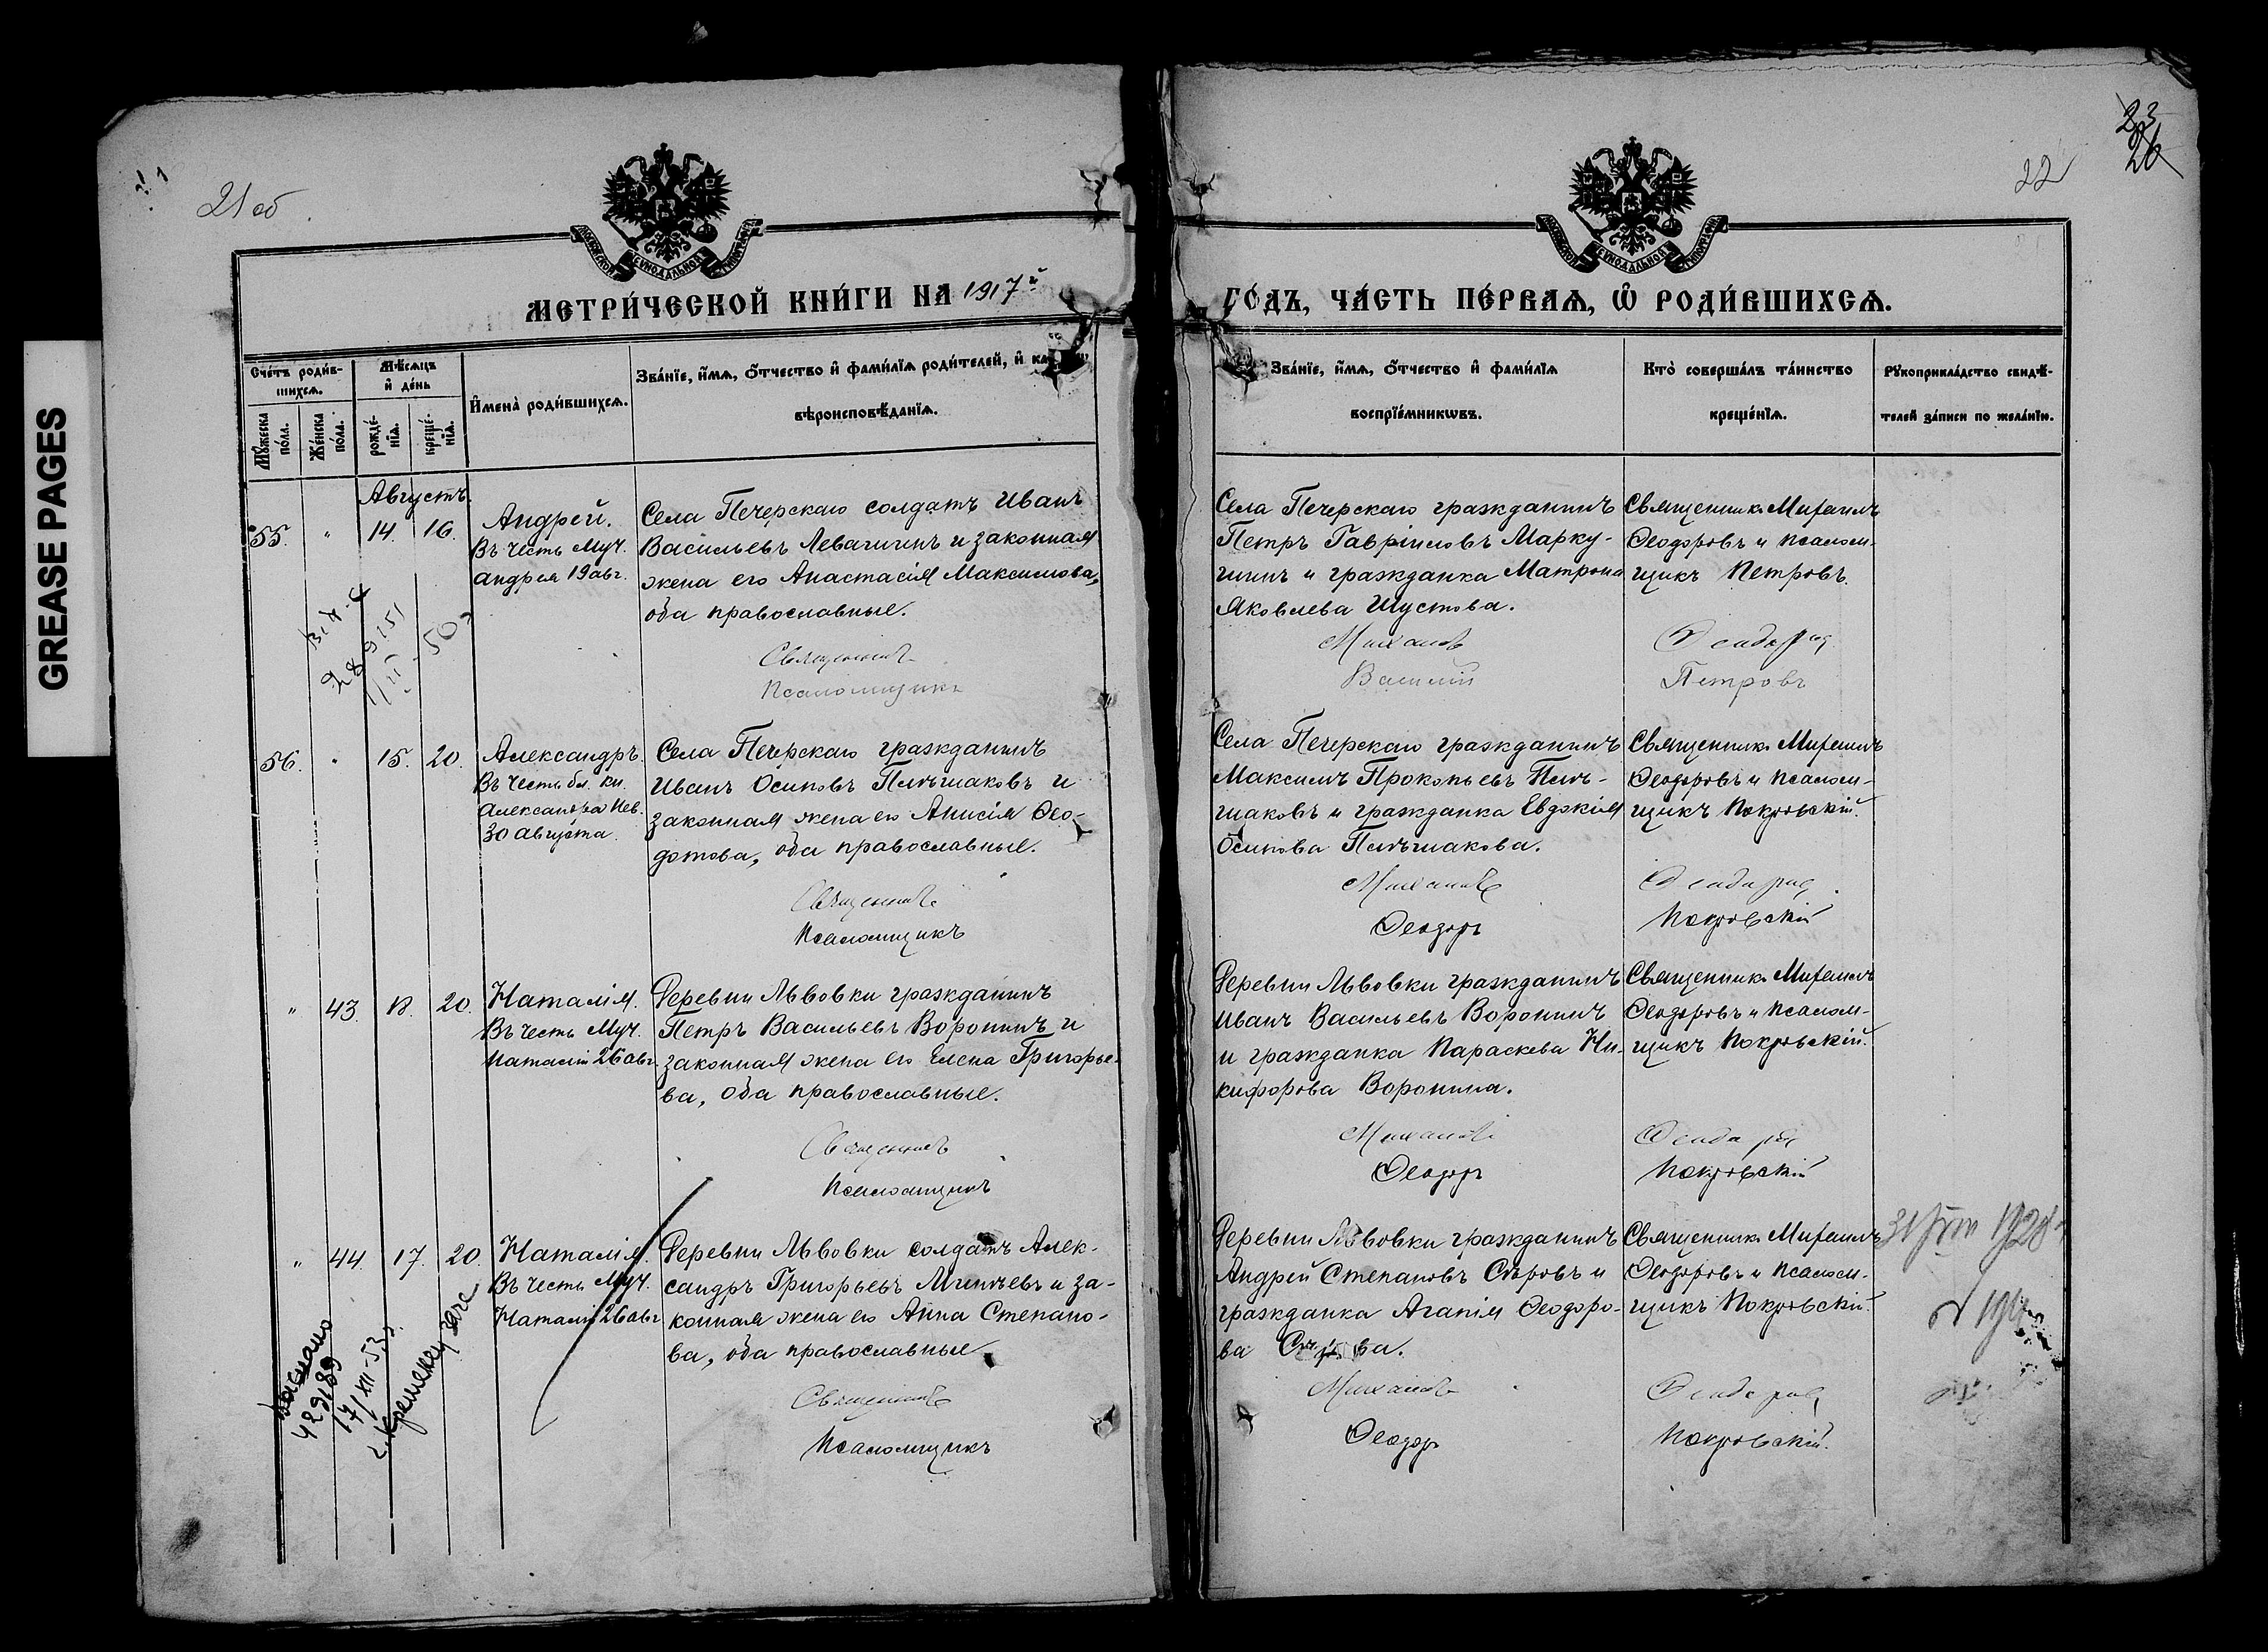 GREASE PAGES
21 об
22
23
26
МОСКОВСКОЙ СѴНОДАЛЬНОЙ ТИПОГРАФІИ
МОСКОВСКОЙ СѴНОДАЛЬНОЙ ТИПОГРАФІИ
МЕТРИ́ЧЕСКОЙ КНИ́ГИ НА 1917й
ГО́ДЪ, ЧА́СТЬ ПЕ́РВАѦ, Ѡ҆ РОДИ́ВШИХСѦ.
Сче́тъ роди́в-
шихсѧ.
Мѣ́сѧцъ
и҆ де́нь
Мꙋ́жеска
по́ла.
Же́нска
по́ла.
рожде́-
нїѧ.
креще́-
нїѧ.
И҆мена̀ роди́вшихсѧ.
Зва́нїе, и҆́мѧ, ѻ҆́тчество и҆ фами́лїѧ роди́телей, и҆
вѣроисповѣ́данїѧ.
Зва́нїе, и҆́мѧ, ѻ҆́тчество и҆ фами́лїѧ
воспрїе́мникѡвъ.
Кто̀ соверша́лъ та́инство
креще́нїѧ.
Рꙋкоприкла́дство свидѣ́-
телей за́писи по жела́нїю.
Августъ.
55. " 14. 16.
Андрей.
Въ честь Муч.
Андрея 19 авг.
Села Печерскаго солдатъ Иванъ
Васильевъ Левагинъ и законная
жена его Анастасія Максимова,
оба православные.
Священникъ
Псаломщикъ
Села Печерскаго гражданинъ
Петръ Гавріиловъ Марку-
шинъ и гражданка Матрона
Яковлева Шустова.
Михаилъ
Василій
Священникъ Михаилъ
Ѳеодоровъ и псалом-
щикъ Петровъ.
Ѳеодоровъ
Петровъ
56. " 15. 20.
Александръ.
Въ честь бл. кн.
Александра Нев.
30 августа.
Села Печерскаго гражданинъ
Иванъ Осиповъ Пильшаковъ и
законная жена его Анисія Ѳео-
дотова, оба православные.
Священникъ
Псаломщикъ
Села Печерскаго гражданинъ
Максимъ Прокопьевъ Пиль-
шаковъ и гражданка Евдокія
Осипова Пильшакова.
Михаилъ
Ѳеодоръ
Священникъ Михаилъ
Ѳеодоровъ и псалом-
щикъ Покровскій.
Ѳеодоровъ
Покровскій
" 43. 20.
Наталія.
Въ честь Муч.
Наталіи 26 авг.
Деревни Львовки гражданинъ
Петръ Васильевъ Воронинъ и
законная жена его Елена Григорье-
ва, оба православные.
Священникъ
Псаломщикъ
Деревни Львовки гражданинъ
Иванъ Васильевъ Воронинъ
и гражданка Параскева Ни-
кифорова Воронина.
Михаилъ
Ѳеодоръ
Священникъ Михаилъ
Ѳеодоровъ и псалом-
щикъ Покровскій.
Ѳеодоровъ
Покровскій
" 44. 17. 20.
Наталія.
Въ честь Муч.
Наталіи 26 авг.
Деревни Львовки солдатъ Алек-
сандръ Григорьевъ и за-
конная жена его Анна Степано-
ва, оба православные.
Священникъ
Псаломщикъ
Деревни Львовки гражданинъ
Андрей Степановъ Сѣровъ и
гражданка Агапія Ѳеодоро-
ва
Михаилъ
Ѳеодоръ
Священникъ Михаилъ
Ѳеодоровъ и псалом-
щикъ Покровскій.
Ѳеодоровъ
Покровскій.
31/VIII 1928
17/XII-53